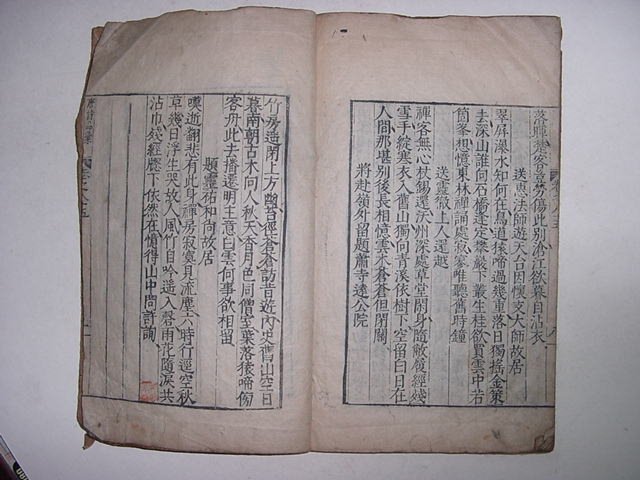 落暉楚客豈勞傷此別滄江欲暮自沾衣
送惠法師遊天台因懷大師故居
翠屏瀑水知何在鳥道猿啼過幾重落日獨搖金策
去深山誰向石橋逢定攀巖下叢生桂欲買雲中若
箇峯想憶東林禪誦處寂寥唯聽舊時鐘
送靈徹上人還越
禪客無心杖錫還沃州深處草堂閑身隨敝履經殘
雪手綻寒衣入舊山獨向青溪依樹下空留白日在
人間那堪別後長相憶雲木蒼蒼但閉關
將赴嶺外留題蕭寺遠公院
竹房遙閉上方幽苔徑蒼蒼訪昔遊內史舊山空日
暮南朝古木向人秋天香月色同僧室葉落猿啼傍
客舟此去播遷明主意白雲何事欲相留
題靈祐和尚故居
嘆逝翻悲有此身禪房寂寞見流塵六時行徑空秋
草幾日浮生哭故人風竹自吟遙入磬雨花隨淚共
沾巾殘經牕下依然在憶得山中問許詢